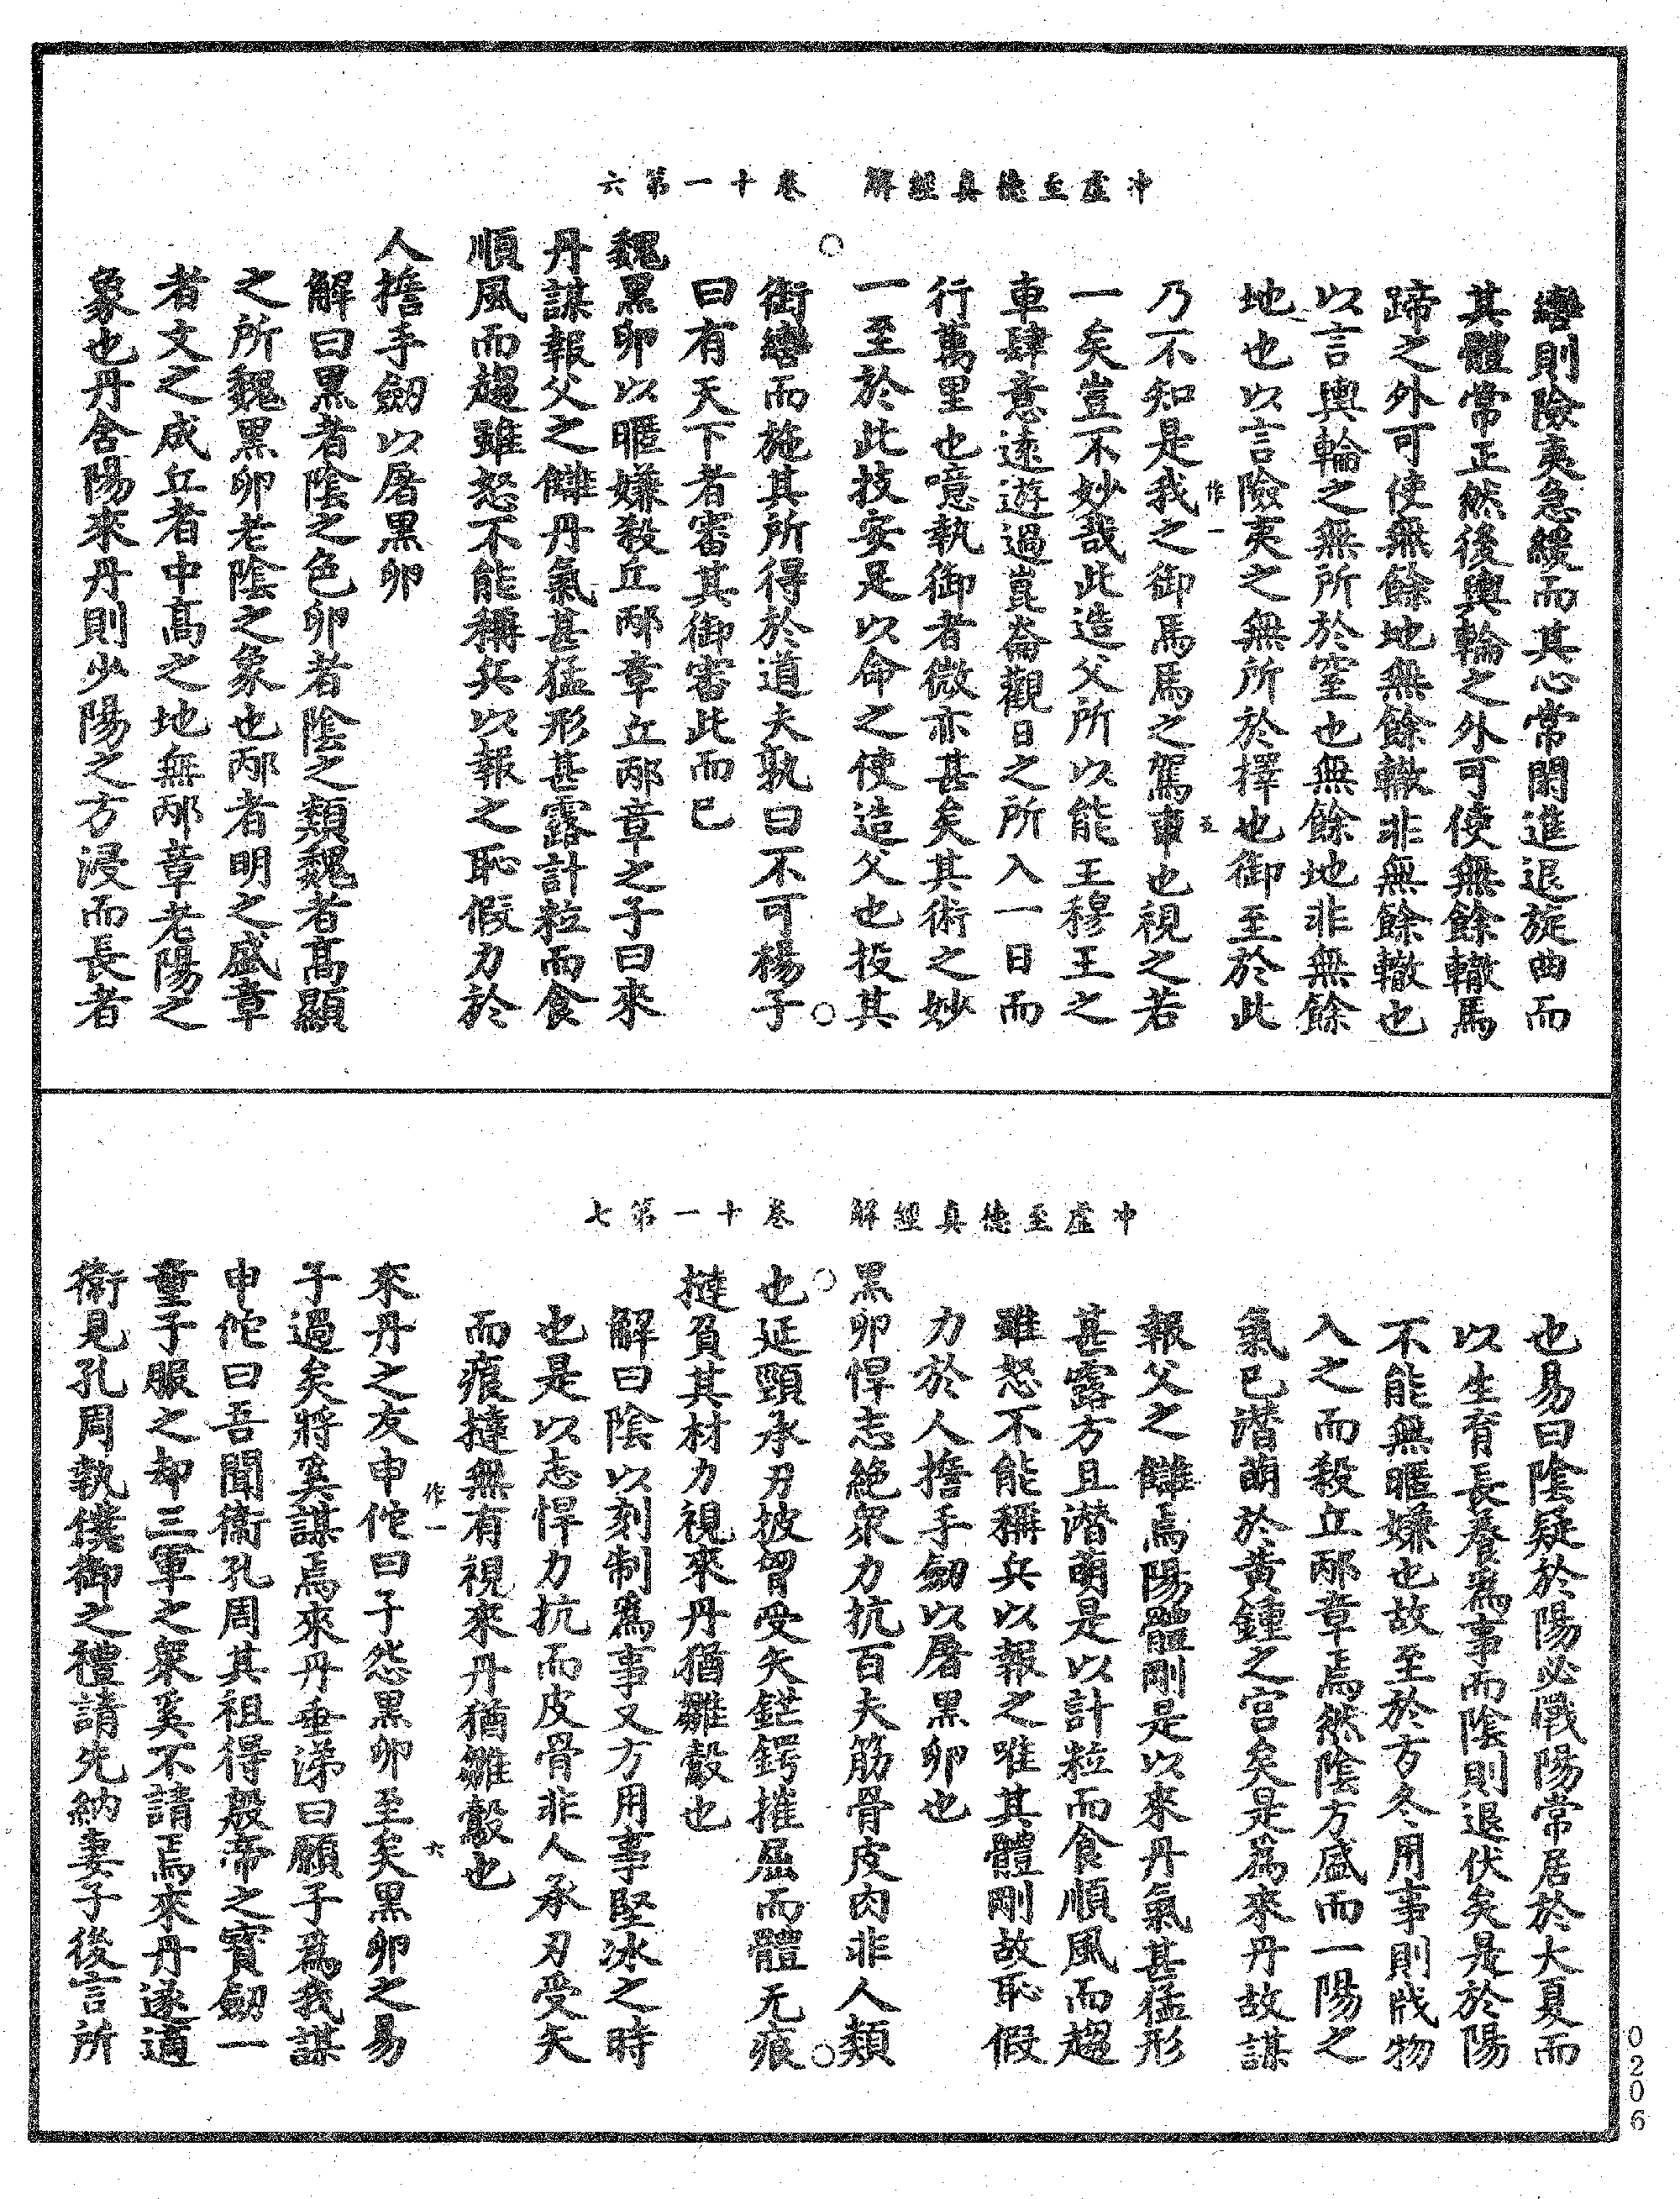 冲虛至德真經解　卷十一第六
轡則險夷急緩而其心常閑進退旋曲而
其體常正然後輿輪之外可使無餘轍馬
蹄之外可使無餘地無餘轍非無餘轍也
以言輿輪之無所於窒也無餘地非無餘
地也以言險夷之無所於擇也御至於此
乃不知是我之御馬馬之駕車也視之若
作一　五
一矣豈不妙哉此造父所以能王穆王之
車肆意遠遊過崑崙觀日之所入一日而
行萬里也噫執御者微亦甚矣其術之妙
一至於此技安是以命之使造父也投其
○　○
銜轡而施其所得於道夫孰曰不可楊子
曰有天下者審其御審此而已
魏黑卵以暱嫌殺丘邴章丘邴章之子曰來
丹謀報父之讎丹氣甚猛形甚露計粒而食
順風而趨雖怒不能稱兵以報之恥假力於
人擔手劒以屠黑卵
解曰黑者陰之色卵者陰之類魏者高顯
之所魏黑卵老陰之象也邴者明之盛章
者文之成丘者中高之地無邴章老陽之
象也丹含陽來丹則少陽之方浸而長者
冲虛至德真經解　卷十一第七
也易曰陰疑於陽必戰陽常居於大夏而
以生育長養爲事而陰則退伏矣是於陽
不能無暱嫌也故至於方冬用事則戕物
入之而殺丘邴章焉然陰方盛而一陽之
氣已潛萌於黃鍾之宮矣是爲來丹故謀
報父之讎焉陽體剛是以來丹氣甚猛形
甚露方且潛萌是以計粒而食順風而趨
雖怒不能稱兵以報之唯其體剛故恥假
力於人擔手劒以屠黑卵也
黑卵悍志絕衆力抗百夫筋骨皮肉非人類
○　○
也延頸承刃披胷受矢鋩鍔摧屈而體无痕
撻負其材力視來丹猶雛鷇也
解曰陰以刻制爲事又方用事堅冰之時
也是以志悍力抗而皮骨非人承刃受矢
而痕撻無有視來丹猶雛鷇也
作一　六
來丹之友申佗曰子怨黑卵至矣黑卵之易
子過矣將奚謀焉來丹垂涕曰願子爲我謀
申佗曰吾聞衞孔周其祖得殷帝之寶劒一
童子服之却三軍之衆奚不請焉來丹遂適
衞見孔周執僕御之禮請先納妻子後言所
0206